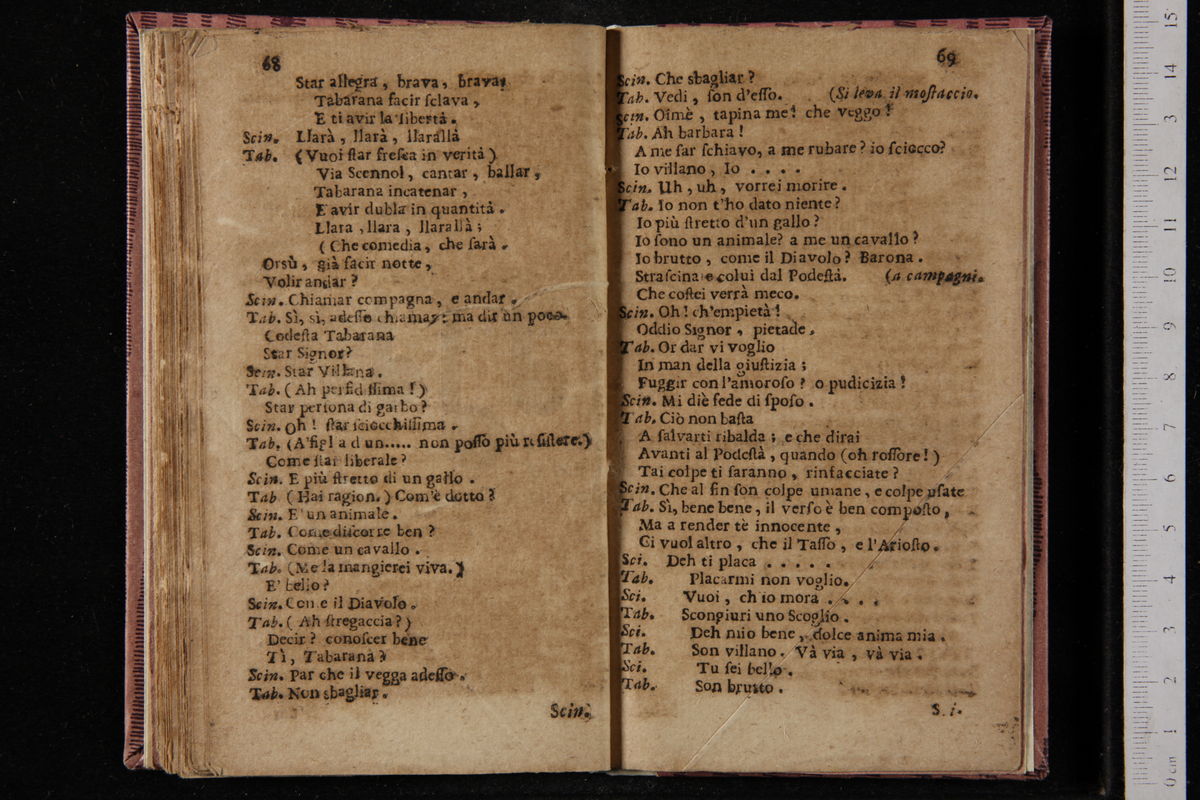 68
Star allegra, brava, brava,
Tabarana facir ſclava,
E ti avir la libertà.
Scin. Llarà, llarà, llarallà
Tab. (Vuoi ſtar freſca in verità)
Via Scennol, cantar, ballar,
Tabarana incatenar,
E avir dubla in quantità.
Llara, llara, llarallà;
(Che comedia, che ſarà.
Orsù, già facir notte,
Volir andar?
Scin. Chiamar compagna, e andar.
Tab. Sì, sì, adeſſo chiamar: ma dir un poco
Codeſta Tabarana
Star Signor?
Scin. Star Villana.
Tab. (Ah perfidiſſima!)
Star perſona di garbo?
Scin. Oh! ſtar ſciocchiſſima.
Tab. (A' figl a d un..... non poſſo più reſiſtere.)
Come ſtar liberale?
Scin. E più ſtretto di un gallo.
Tab (Hai ragion.) Com'è dotto?
Scin. E' un animale.
Tab. Come diſcorre ben?
Scin. Come un cavallo.
Tab. (Me la mangierei viva.)
E' bello?
Scin. Come il Diavolo.
Tab. (Ah ſtregaccia?)
Decir? conoſcer bene
Tì, Tabarana?
Scin. Par che il vegga adeſſo.
Tab. Non sbagliar.
Scin.
69
Scin. Che sbagliar?
Tab. Vedi, ſon d'eſſo. (Si leva il moſtaccio.
Scin. Oimè, tapina me! che veggo!
Tab. Ah barbara!
A me far ſchiavo, a me rubare? io ſciocco?
Io villano, Io ....
Scin. Uh, uh, vorrei morire.
Tab. Io non t'ho dato niente?
Io più ſtretto d'un gallo?
Io ſono un animale? a me un cavallo?
Io brutto, come il Diavolo? Barona.
Straſcinate colui dal Podeſtà. (a campagni.
Che coſtei verrà meco.
Scin. Oh! ch'empietà!
Oddio Signor, pietade.
Tab. Or dar vi voglio
In man della giuſtizia;
Fuggir con l'amoroſo? o pudicizia!
Scin. Mi diè fede di ſpoſo.
Tab. Ciò non baſta
A ſalvarti ribalda; e che dirai
Avanti al Podeſtà, quando (oh roſſore!)
Tai colpe ti ſaranno, rinfacciate?
Scin. Che al fin ſon colpe umane, e colpe uſate
Tab. Sì, bene bene, il verſo è ben compoſto,
Ma a render tè innocente,
Ci vuol altro, che il Taſſo, e l'Arioſto.
Sci. Deh ti placa .....
Tab. Placarmi non voglio.
Sci. Vuoi, ch'io mora ....
Tab. Scongiuri uno Scoglio.
Sci. Deh mio bene, dolce anima mia.
Tab. Son villano. Và via, và via.
Sci. Tu ſei bello.
Tab. Son brutto.
S. i.
15
14
13
12
11
10
9
8
7
6
5
4
3
2
1
0 cm